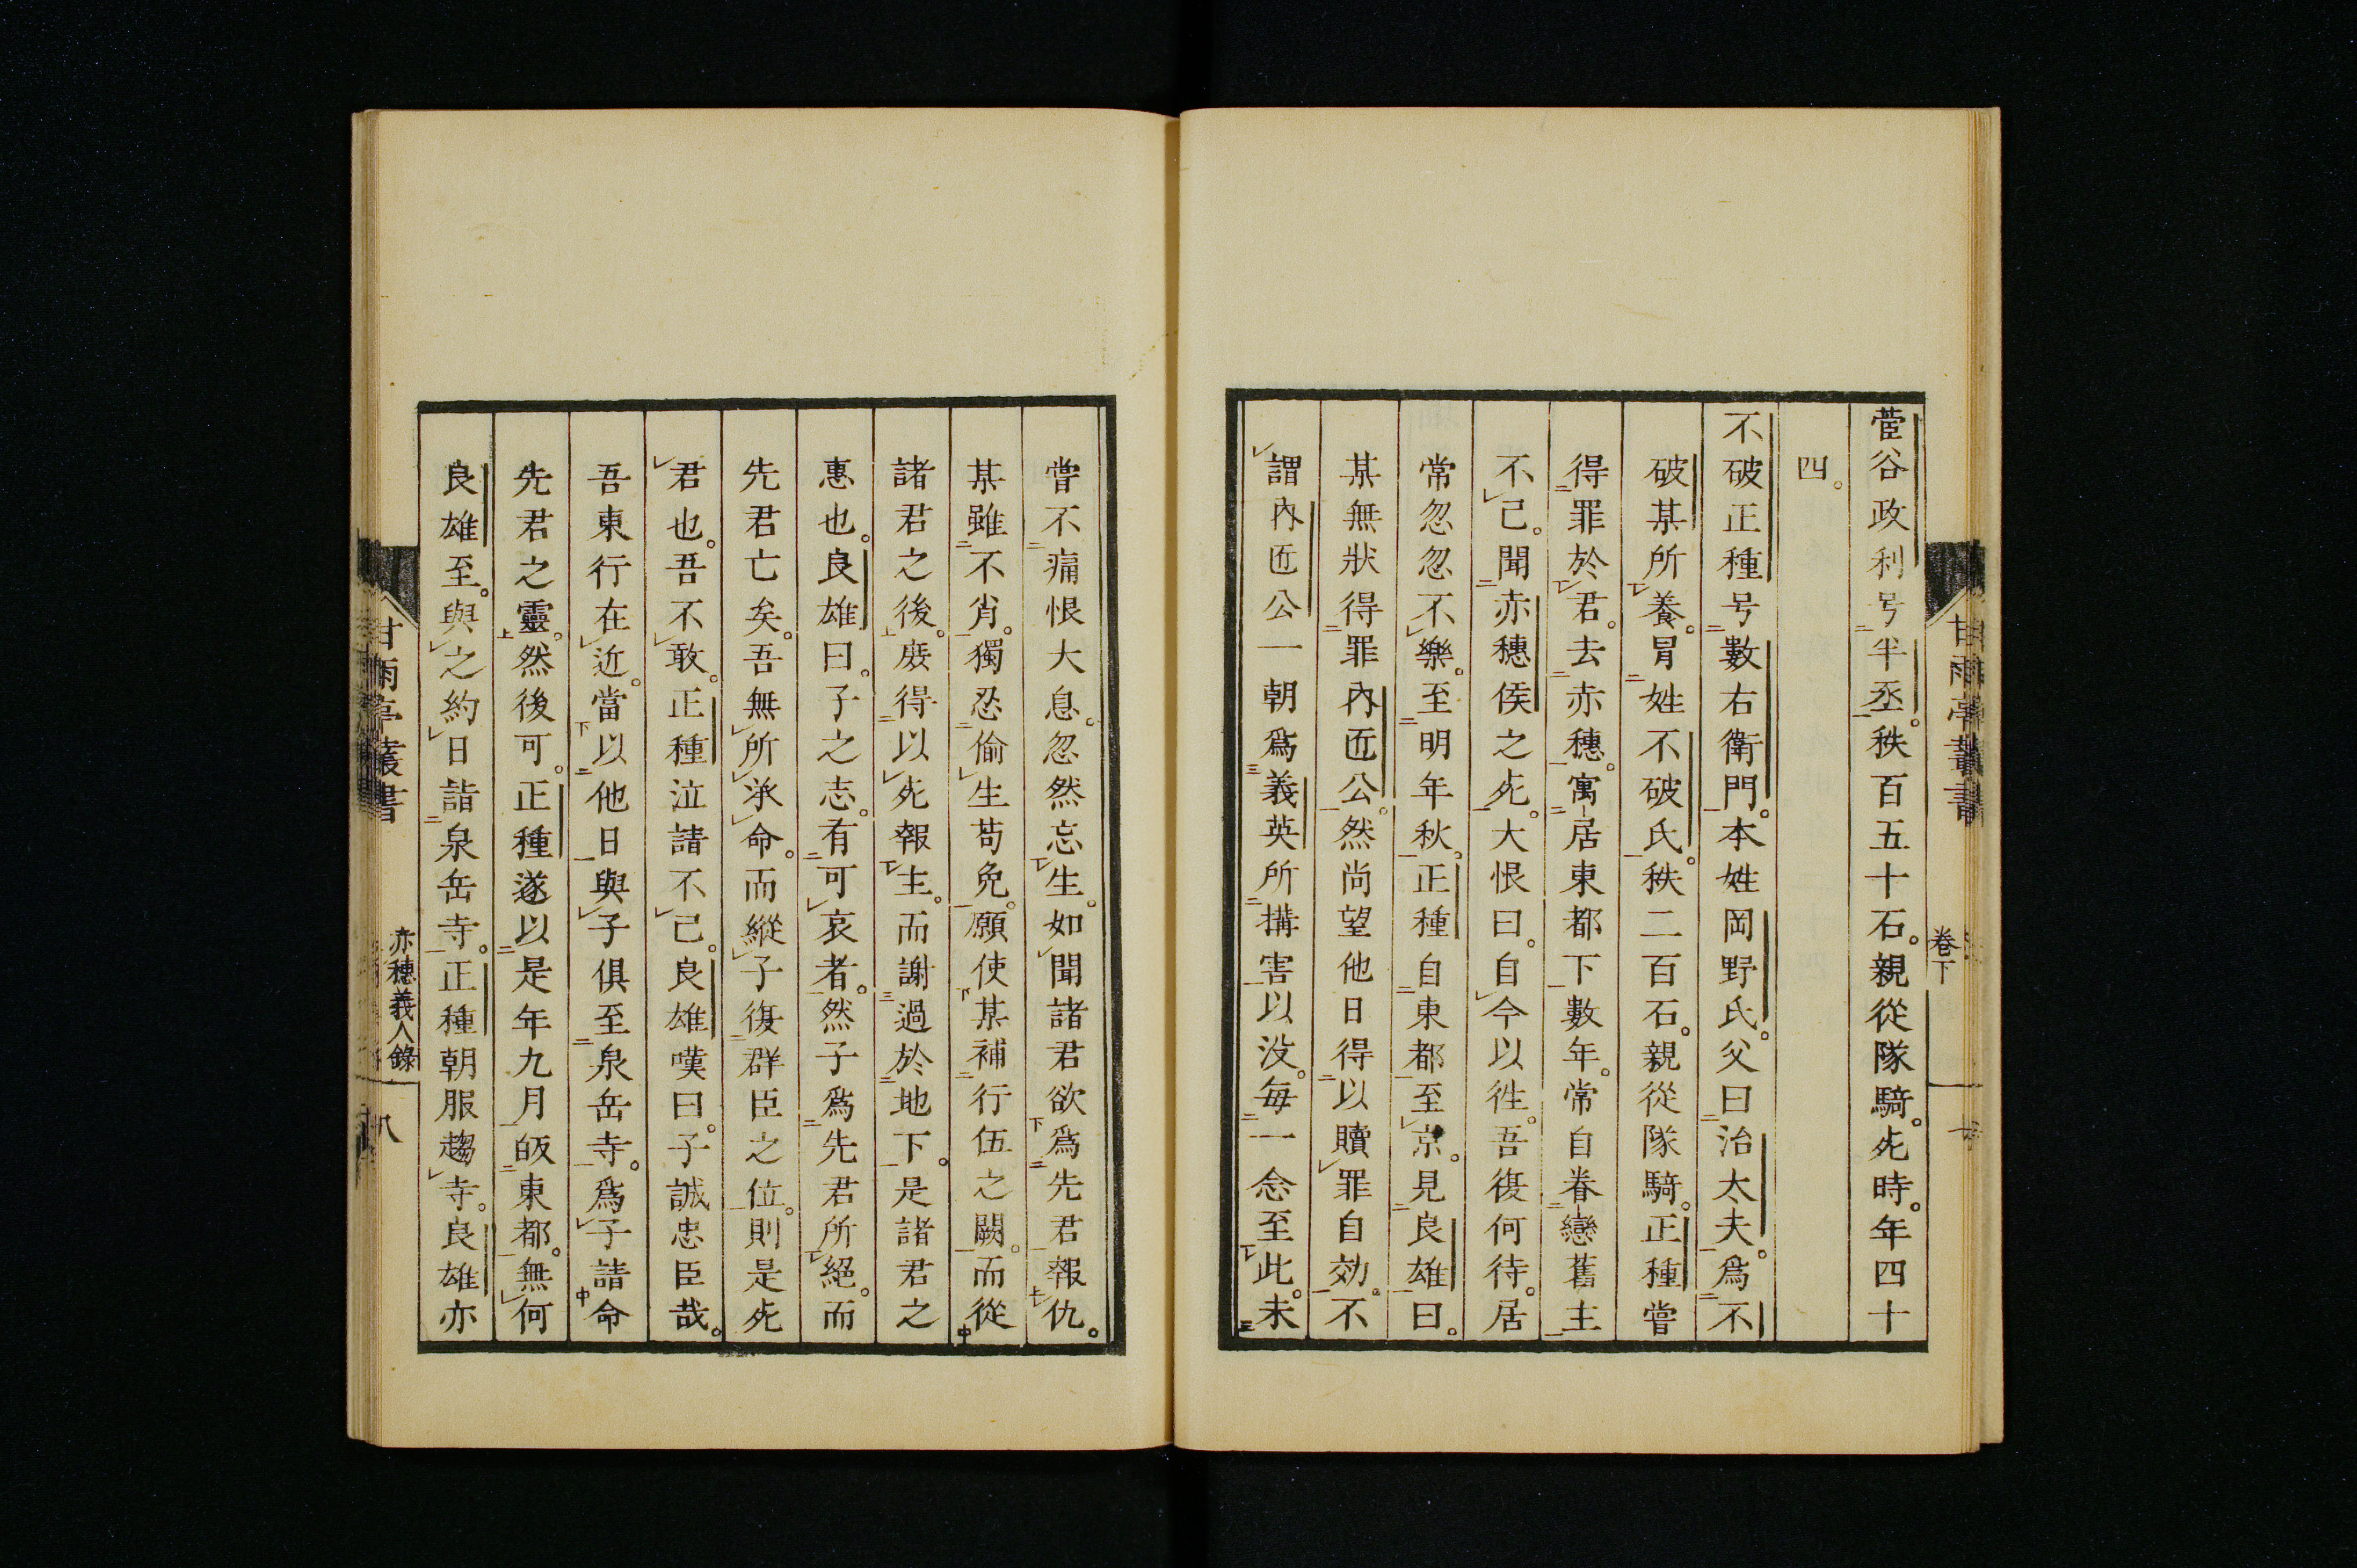 菅谷政利号半丞。秩百五十石。親從隊騎。死時。年四十
四。
不破正種号數右衛門。本姓岡野氏。父曰治太夫。爲不
破某所養。冒姓不破氏。秩二百石。親從隊騎。正種嘗
得罪於君。去赤穗。寓居東都下數年。常自眷戀舊主
不已。聞赤穗侯之死。大恨曰。自今以徃。吾復何待。居
常忽忽不樂。至明年秋。正種自東都至京。見良雄曰。
某無狀得罪內匠公。然尚望他日得以贖罪自効。不
謂內匠公一朝爲義英所搆害以没。每一念至此。未
甘雨亭叢書
卷下
嘗不痛恨大息。忽然忘生。如聞諸君欲爲先君報仇。
某雖不肖。獨忍偷生苟免。願使某補行伍之闕。而從
諸君之後。庶得以死報主。而謝過於地下。是諸君之
惠也。良雄曰。子之志。有可哀者。然子爲先君所絕。而
先君亡矣。吾無所承命。而縱子復群臣之位。則是死
君也。吾不敢。正種泣請不已。良雄嘆曰。子誠忠臣哉。
吾東行在近。當以他日與子俱至泉岳寺。爲子請命
先君之靈。然後可。正種遂以是年九月皈東都。無何
良雄至。與之約日詣泉岳寺。正種朝服趨寺。良雄亦
甘雨亭叢書
赤穗義人錄
八